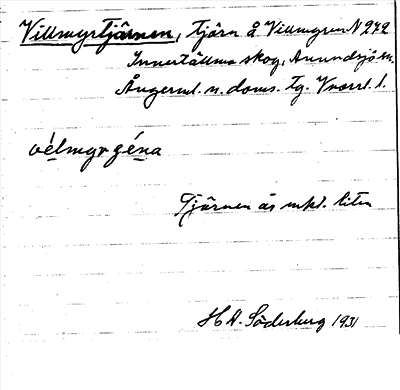 Villmyrtjärnen, Tjärn å Villmyren N 242
Innertällmo skog, Anundsjö sn.
Ångerml. n. doms. tg. Vnorrl. l.
vélmyrgéna
Tjärnen äs mkt. liten
H A. Söderberg 1931